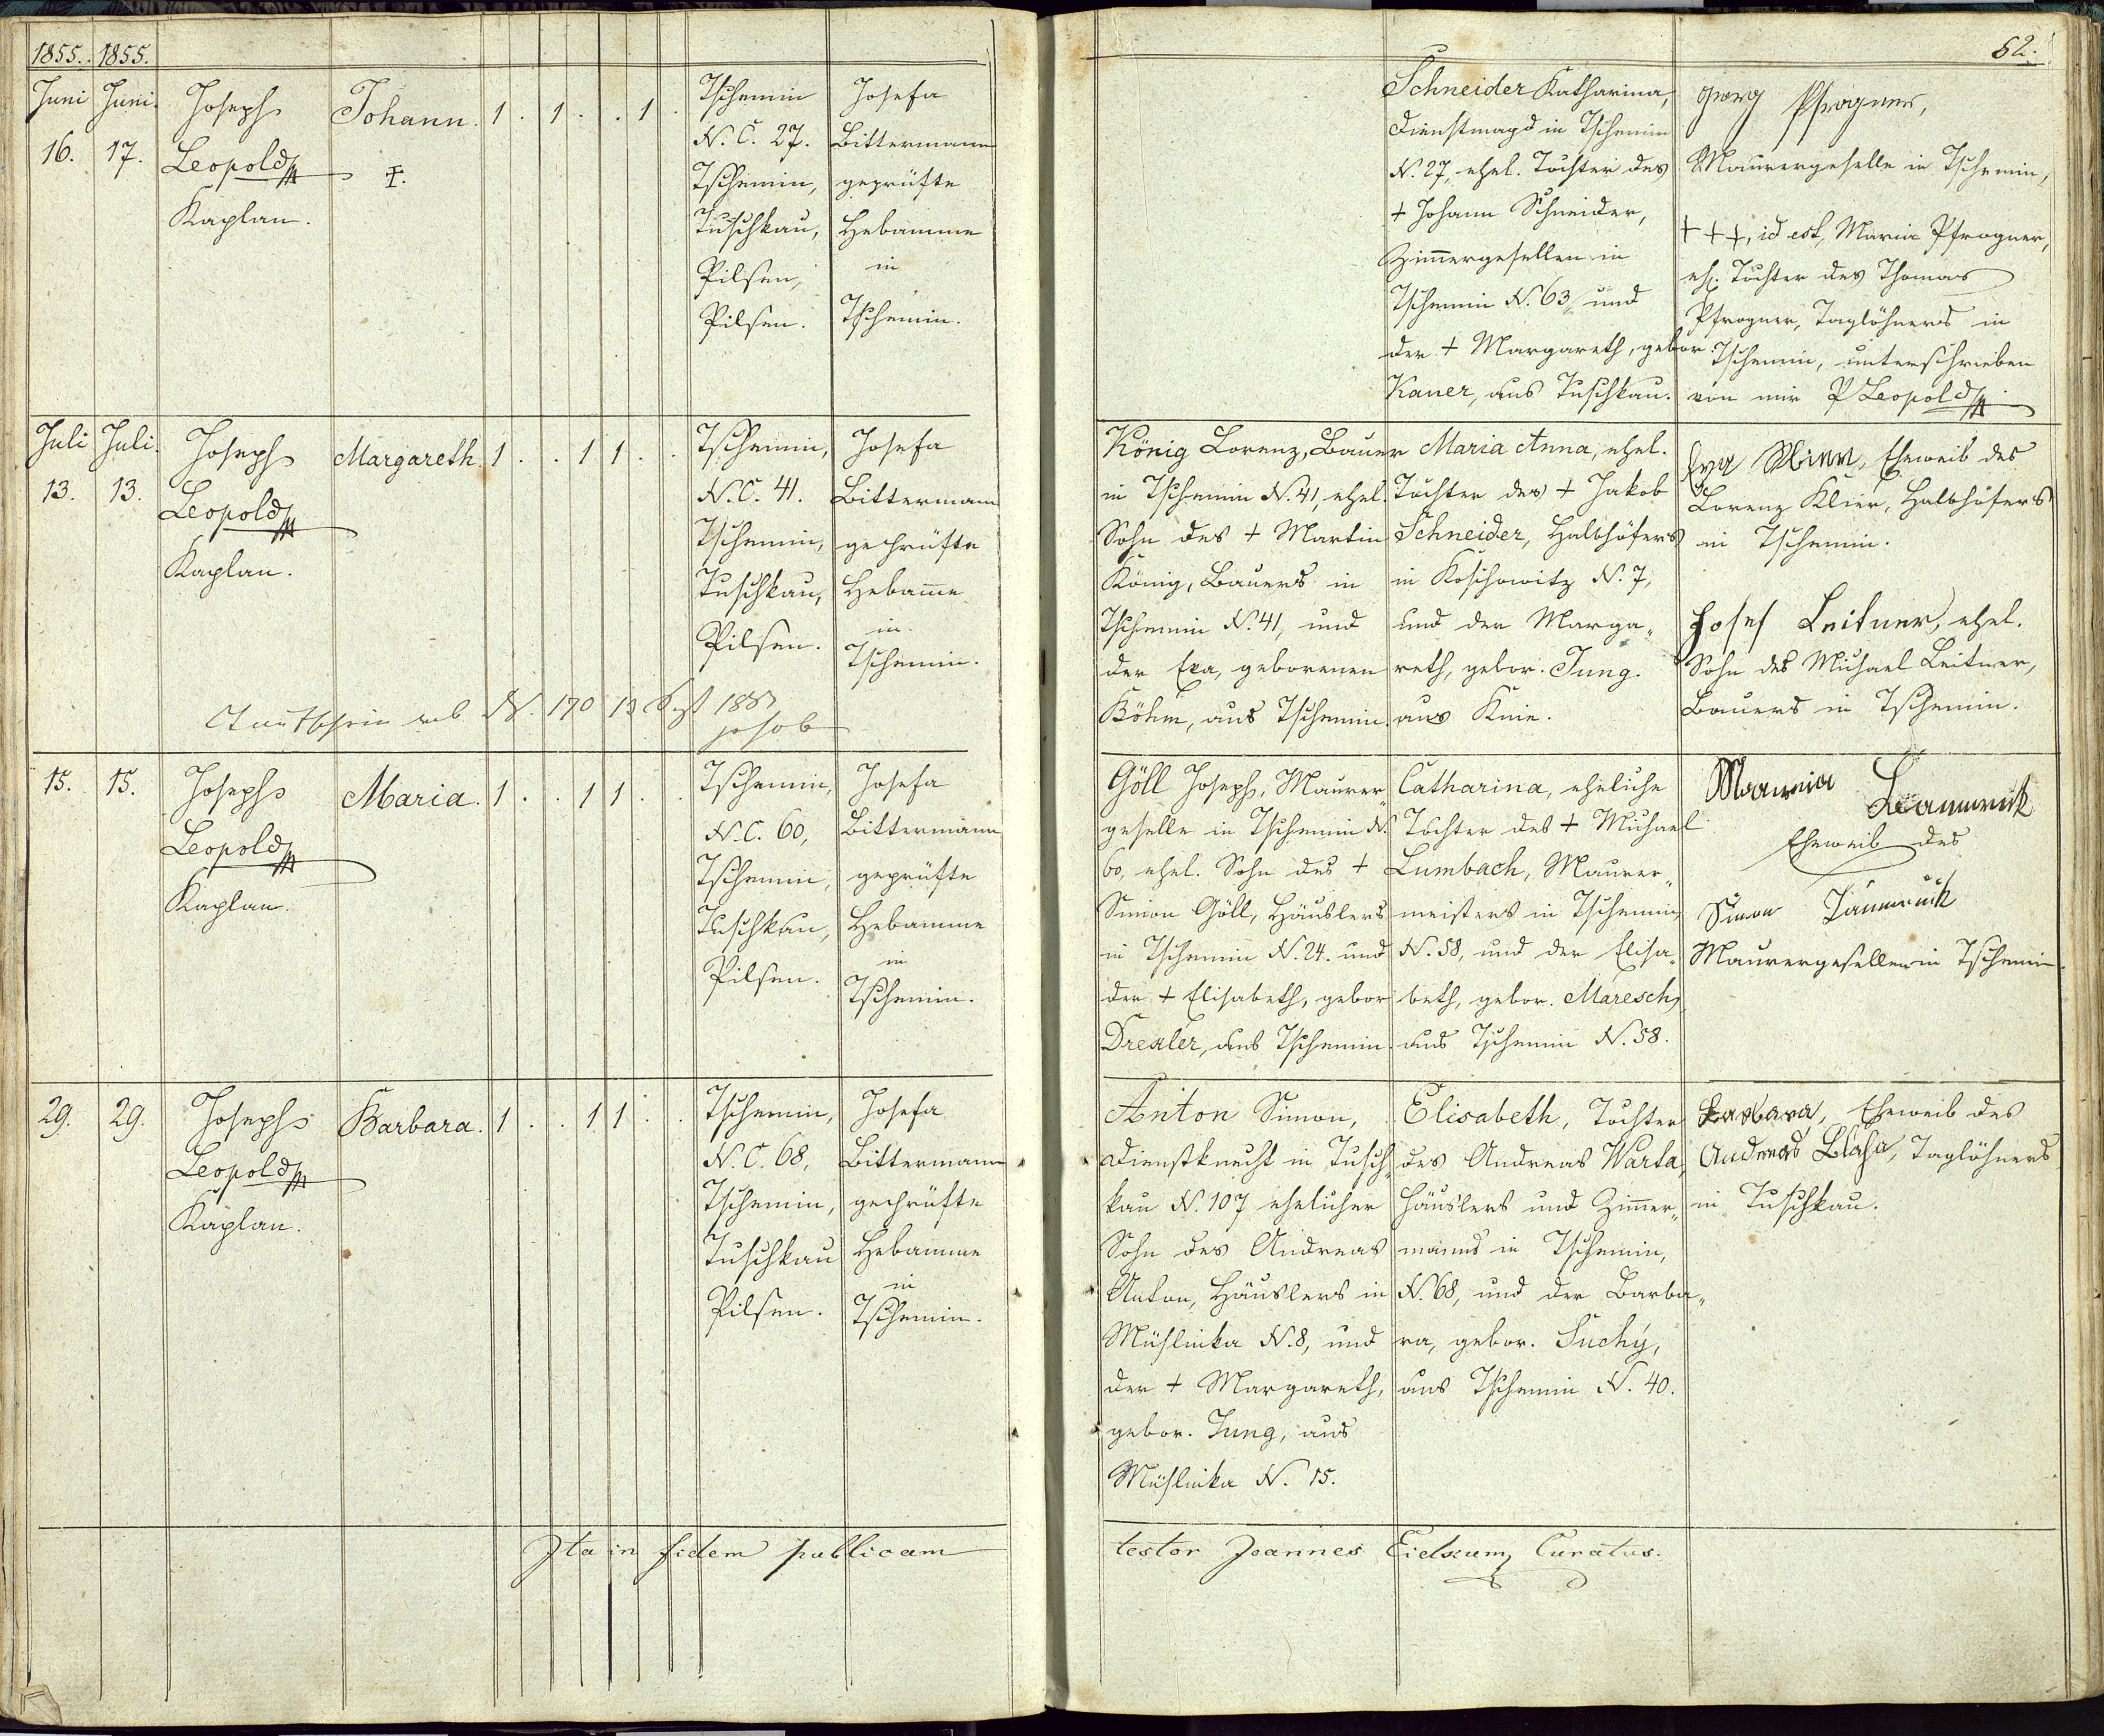 1855. 1855.
Juni Juni.
16. 17.
Joseph
Leopold
Kaplan.
Johann. 1 . 1 . . 1 .
‡.
Tschemin
N. C. 27.
Tschemin,
Tuschkau,
Pilsen,
Pilsen.
Josefa
Bittermann
geprüfte
Hebamme
in
Tschemin.
Juli Juli.
13. 13.
Joseph
Leopold
Kaplan.
Margareth. 1 . . 1 1 . .
Tschemin,
N. C. 41.
Tschemin,
Tuschkau,
Pilsen.
Josefa
Bittermann
geprüfte
Hebam̄e
in
Tschemin.
N. 170 13
15. 15.
Joseph
Leopold
Kaplan.
Maria. 1 . . 1 1 . .
Tschemin,
N. C. 60,
Tschemin,
Tuschkau,
Pilsen.
Josefa
Bittermann
geprüfte
Hebamme
in
Tschemin.
29. 29.
Joseph
Leopold
Kaplan.
Barbara. 1 . . 1 1 . .
Tschemin,
N. C. 68,
Tschemin,
Tuschkau
Pilsen.
Josefa
Bittermann
geprüfte
Hebamme
in
Tschemin.
Ita in fidem publicam
62.
Schneider Katharina,
Dienstmagd in Tschemin
N. 27, ehel. Tochter des
+ Johann Schneider,
Zim̄ergesellen in
Tschemin N. 63, und
der + Margareth, gebor.
Kauer, aus Tuschkau.
Georg Pfrogner,
Maurergeselle in Tschemin,
+++, id est, Maria Pfrogner,
eh. Tochter des Thomas
Pfrogner, Taglöhners in
Tschemin, unterschrieben
von mir P Leopold
König Lorenz, Bauer
in Tschemin N. 41, ehel.
Sohn des + Martin
König, Bauers in
Tschemin N. 41, und
der Eva, geborenen
Böhm, aus Tschemin.
Maria Anna, ehel.
Tochter des + Jakob
Schneider, Halbhöfers
in Koschowitz N. 7,
und der Marga„
reth, gebor. Jung.
aus Knie.
Eva Klier, Eheweib des
Lorenz Klier, Halbhöfers
in Tschemin.
Josef Leitner, ehel.
Sohn des Michael Leitner,
Bauers in Tschemin.
Göll Joseph, Maurer„
geselle in Tschemin N.
60, ehel. Sohn des +
Simon Göll, Häuslers
in Tschemin N. 24. und
der + Elisabeth, gebor
Drexler, aus Tschemin.
Catharina, eheliche
Tochter des + Michael
Lumbach, Maurer„
meisters in Tschemin
N. 58, und der Elisa„
beth, gebor. Maresch,
aus Tschemin N. 58.
Eheweib des
Simon
Maurergesellen in Tschemin.
Anton Simon,
Dienstknecht in Tusch„
kau N. 107 ehelicher
Sohn des Andreas
Anton, Häuslers in
Müslinka N. 8, und
der + Margareth,
gebor. Jung, aus
Müslinka N. 15.
Elisabeth, Tochter
des Andreas Warta,
Häuslers und Zim̄er„
manns in Tschemin,
N. 68, und der Barba„
ra, gebor. Suchý,
aus Tschemin N. 40.
Barbara, Eheweib des
Andreas Blaha, Taglöhners
in Tuschkau.
testor Joannes Curatus.